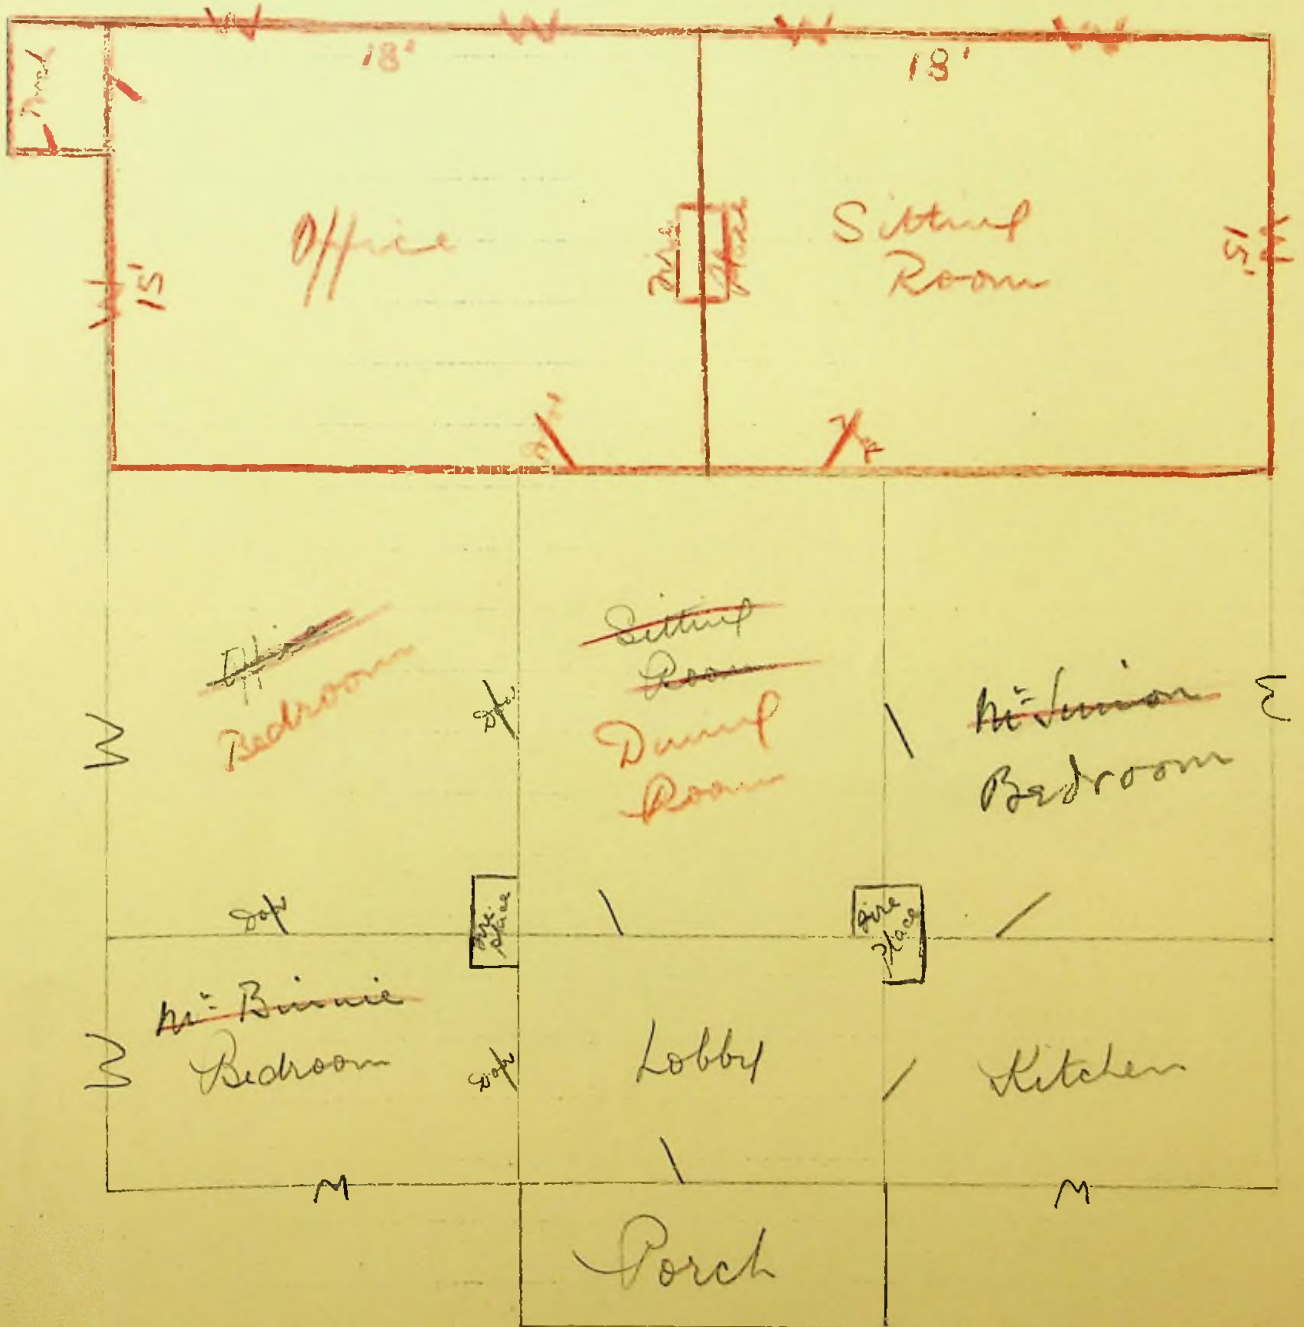 W W W W
18' 18'
Office
Fire Place
Sitting
Room
W 15'
15' W
Door
Office
Bedroom
Sitting
Room
Dining
Room
Bedroom
W
Door
W
Door
Fire
place
Fire
place
Mr Binnie
Bedroom
W
Door
Lobby
Kitchen
W
W
Porch